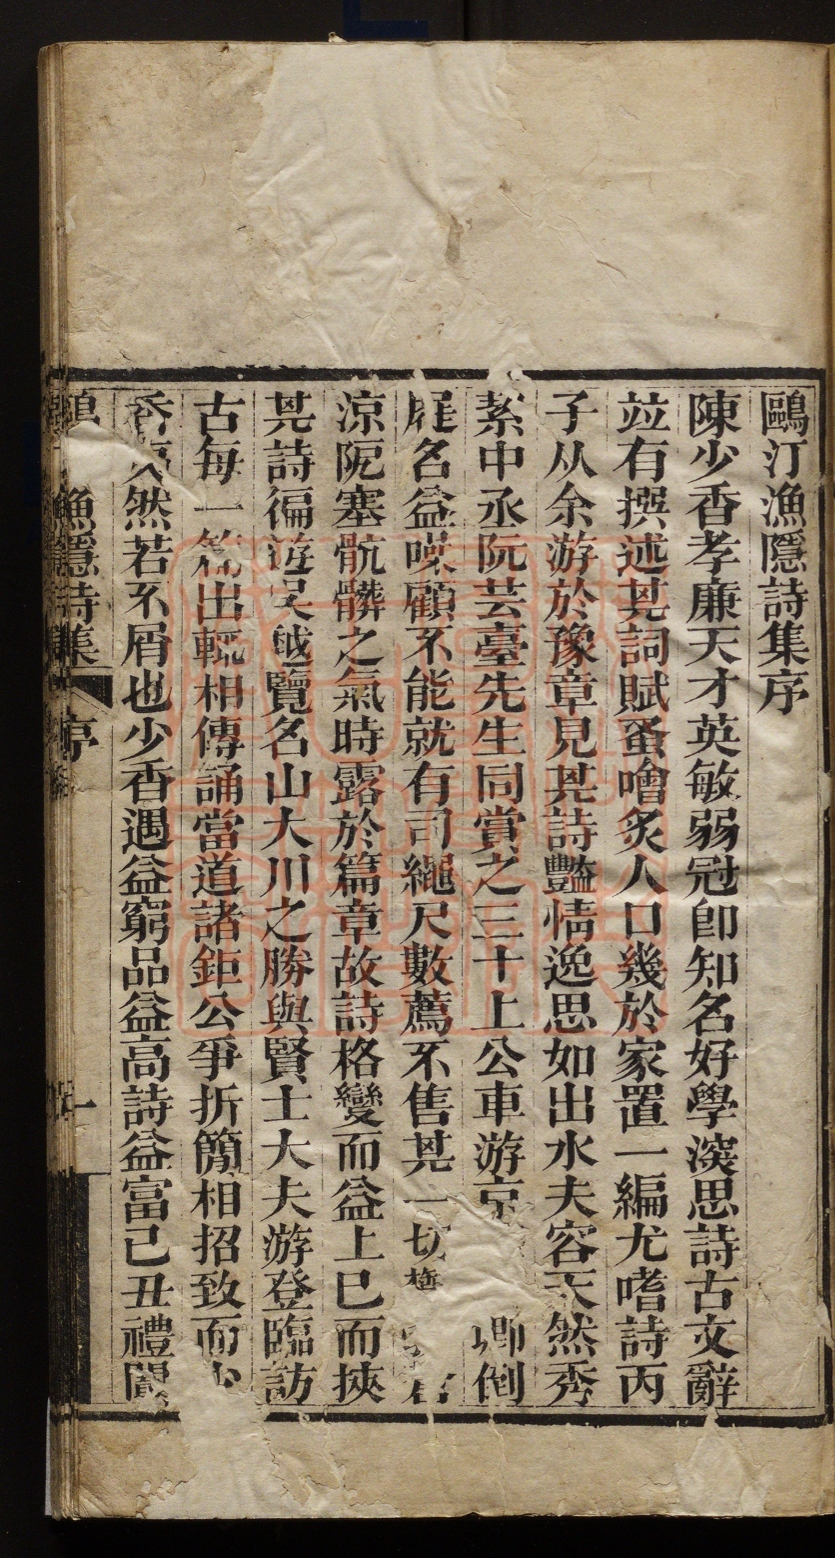 鷗汀漁隱詩集序
陳少香孝廉天才英敏弱冠卽知名好學深思詩古文辭
竝有撰述其詞賦蚤噲炙人口幾於家置一編尤嗜詩丙
子从余游於豫章見其詩豔情逸思如出水夫容天然秀
絜中丞阮芸臺先生同賞之三十上公車游京卿倒
屣名益噪顧不能就有司繩尺數薦不售其一切
涼阨塞骯髒之氣時露於篇章故詩格變而益上巳而挾
其詩徧遊吳越覽名山大川之勝與賢士大夫游登臨訪
古每一篇出輒相傳誦當道諸鉅公爭折簡相招致而少
香夷然若不屑也少香遇益窮品益高詩益富己丑禮闈
漁隱詩集 序 一